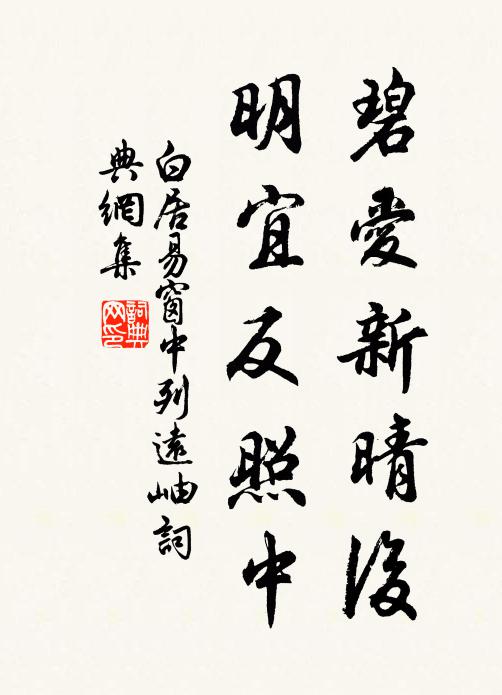 碧愛新晴後
明宜反照中
白居易窗中列遠岫詞
典網集
詞典
网印